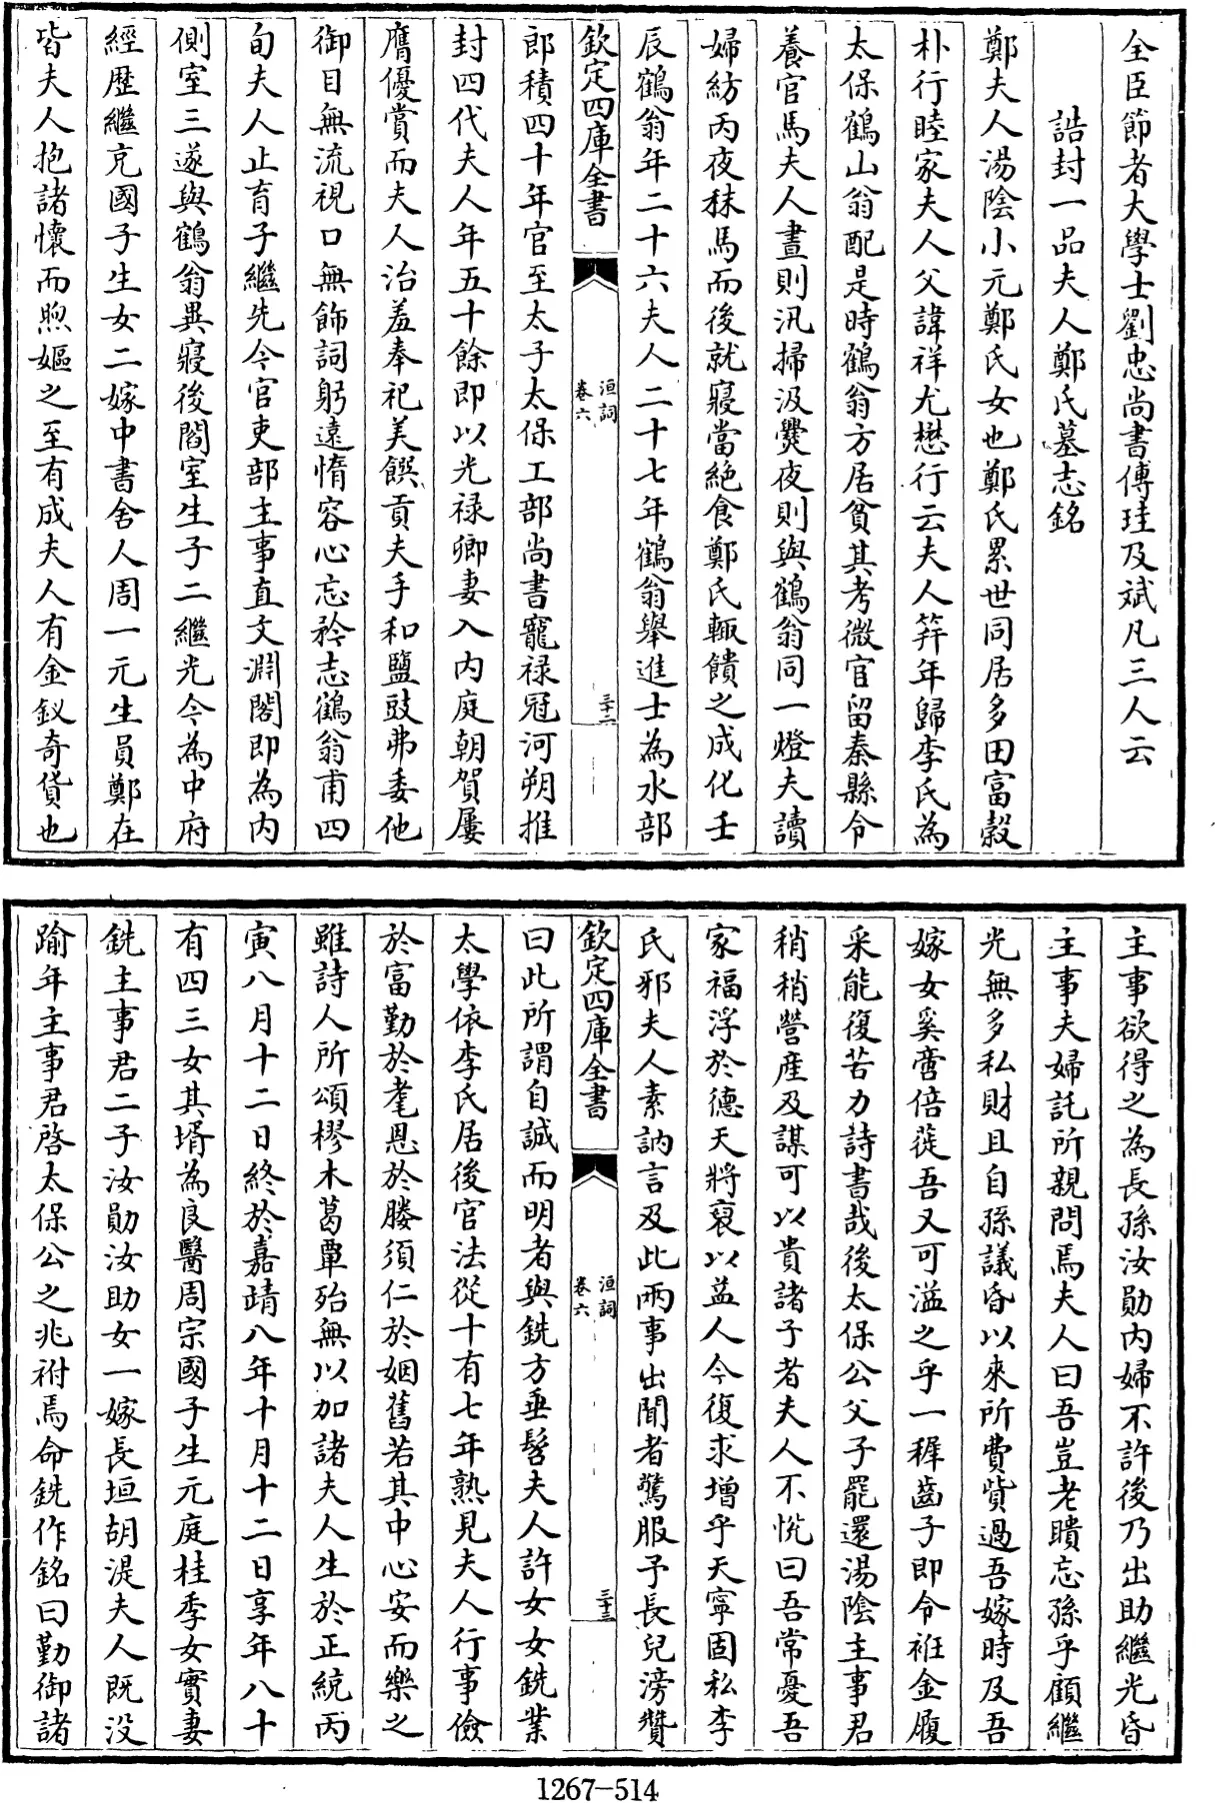 全臣節者大學士劉忠尚書傅珪及斌凡三人云
誥封一品夫人鄭氏墓志銘
鄭夫人湯陰小元鄭氏女也鄭氏累世同居多田富穀
朴行睦家夫人父諱祥尤懋行云夫人笄年歸李氏為
太保鶴山翁配是時鶴翁方居貧其考微官留秦縣令
養官馬夫人晝則汛掃汲爨夜則與鶴翁同一燈夫讀
婦紡丙夜秣馬而後就寢當絶食鄭氏輙饋之成化壬
辰鶴翁年二十六夫人二十七年鶴翁舉進士為水部
欽定四庫全書
洹詞
卷六
三十二
郎積四十年官至太子太保工部尚書寵禄冠河朔推
封四代夫人年五十餘即以光禄卿妻入内庭朝賀屢
膺優賞而夫人治羞奉祀美饌貢夫手和鹽豉弗委他
御目無流視口無飾詞躬遠惰容心忘矜志鶴翁甫四
旬夫人止育子繼先今官吏部主事直文淵閣即為内
側室三遂與鶴翁異寢後閻室生子二繼光今為中府
經歷繼克國子生女二嫁中書舍人周一元生員鄭在
皆夫人抱諸懷而煦嫗之至有成夫人有金釵奇貨也
主事欲得之為長孫汝勛内婦不許後乃出助繼光昏
主事夫婦託所親問焉夫人曰吾豈老瞶忘孫乎顧繼
光無多私財且自孫議昏以來所費貲過吾嫁時及吾
嫁女奚啻倍蓰吾又可溢之乎一穉齒子即令袵金履
采能復苦力詩書哉後太保公父子罷還湯陰主事君
稍稍營産及謀可以貴諸子者夫人不悦曰吾常憂吾
家福浮於德天將裒以益人今復求增乎天寧固私李
氏邪夫人素訥言及此兩事出聞者驚服予長兒滂贊
欽定四庫全書
洹詞
卷六
三十三
曰此所謂自誠而明者與銑方垂髫夫人許女女銑業
太學依李氏居後官法從十有七年熟見夫人行事儉
於富勤於耄恩於媵須仁於姻舊若其中心安而樂之
雖詩人所頌樛木葛覃殆無以加諸夫人生於正統丙
寅八月十二日終於嘉靖八年十月十二日享年八十
有四三女其壻為良醫周宗國子生元庭桂季女實妻
銑主事君二子汝勛汝助女一嫁長垣胡湜夫人既没
踰年主事君啓太保公之兆祔焉命銑作銘曰勤御諸
1267-514